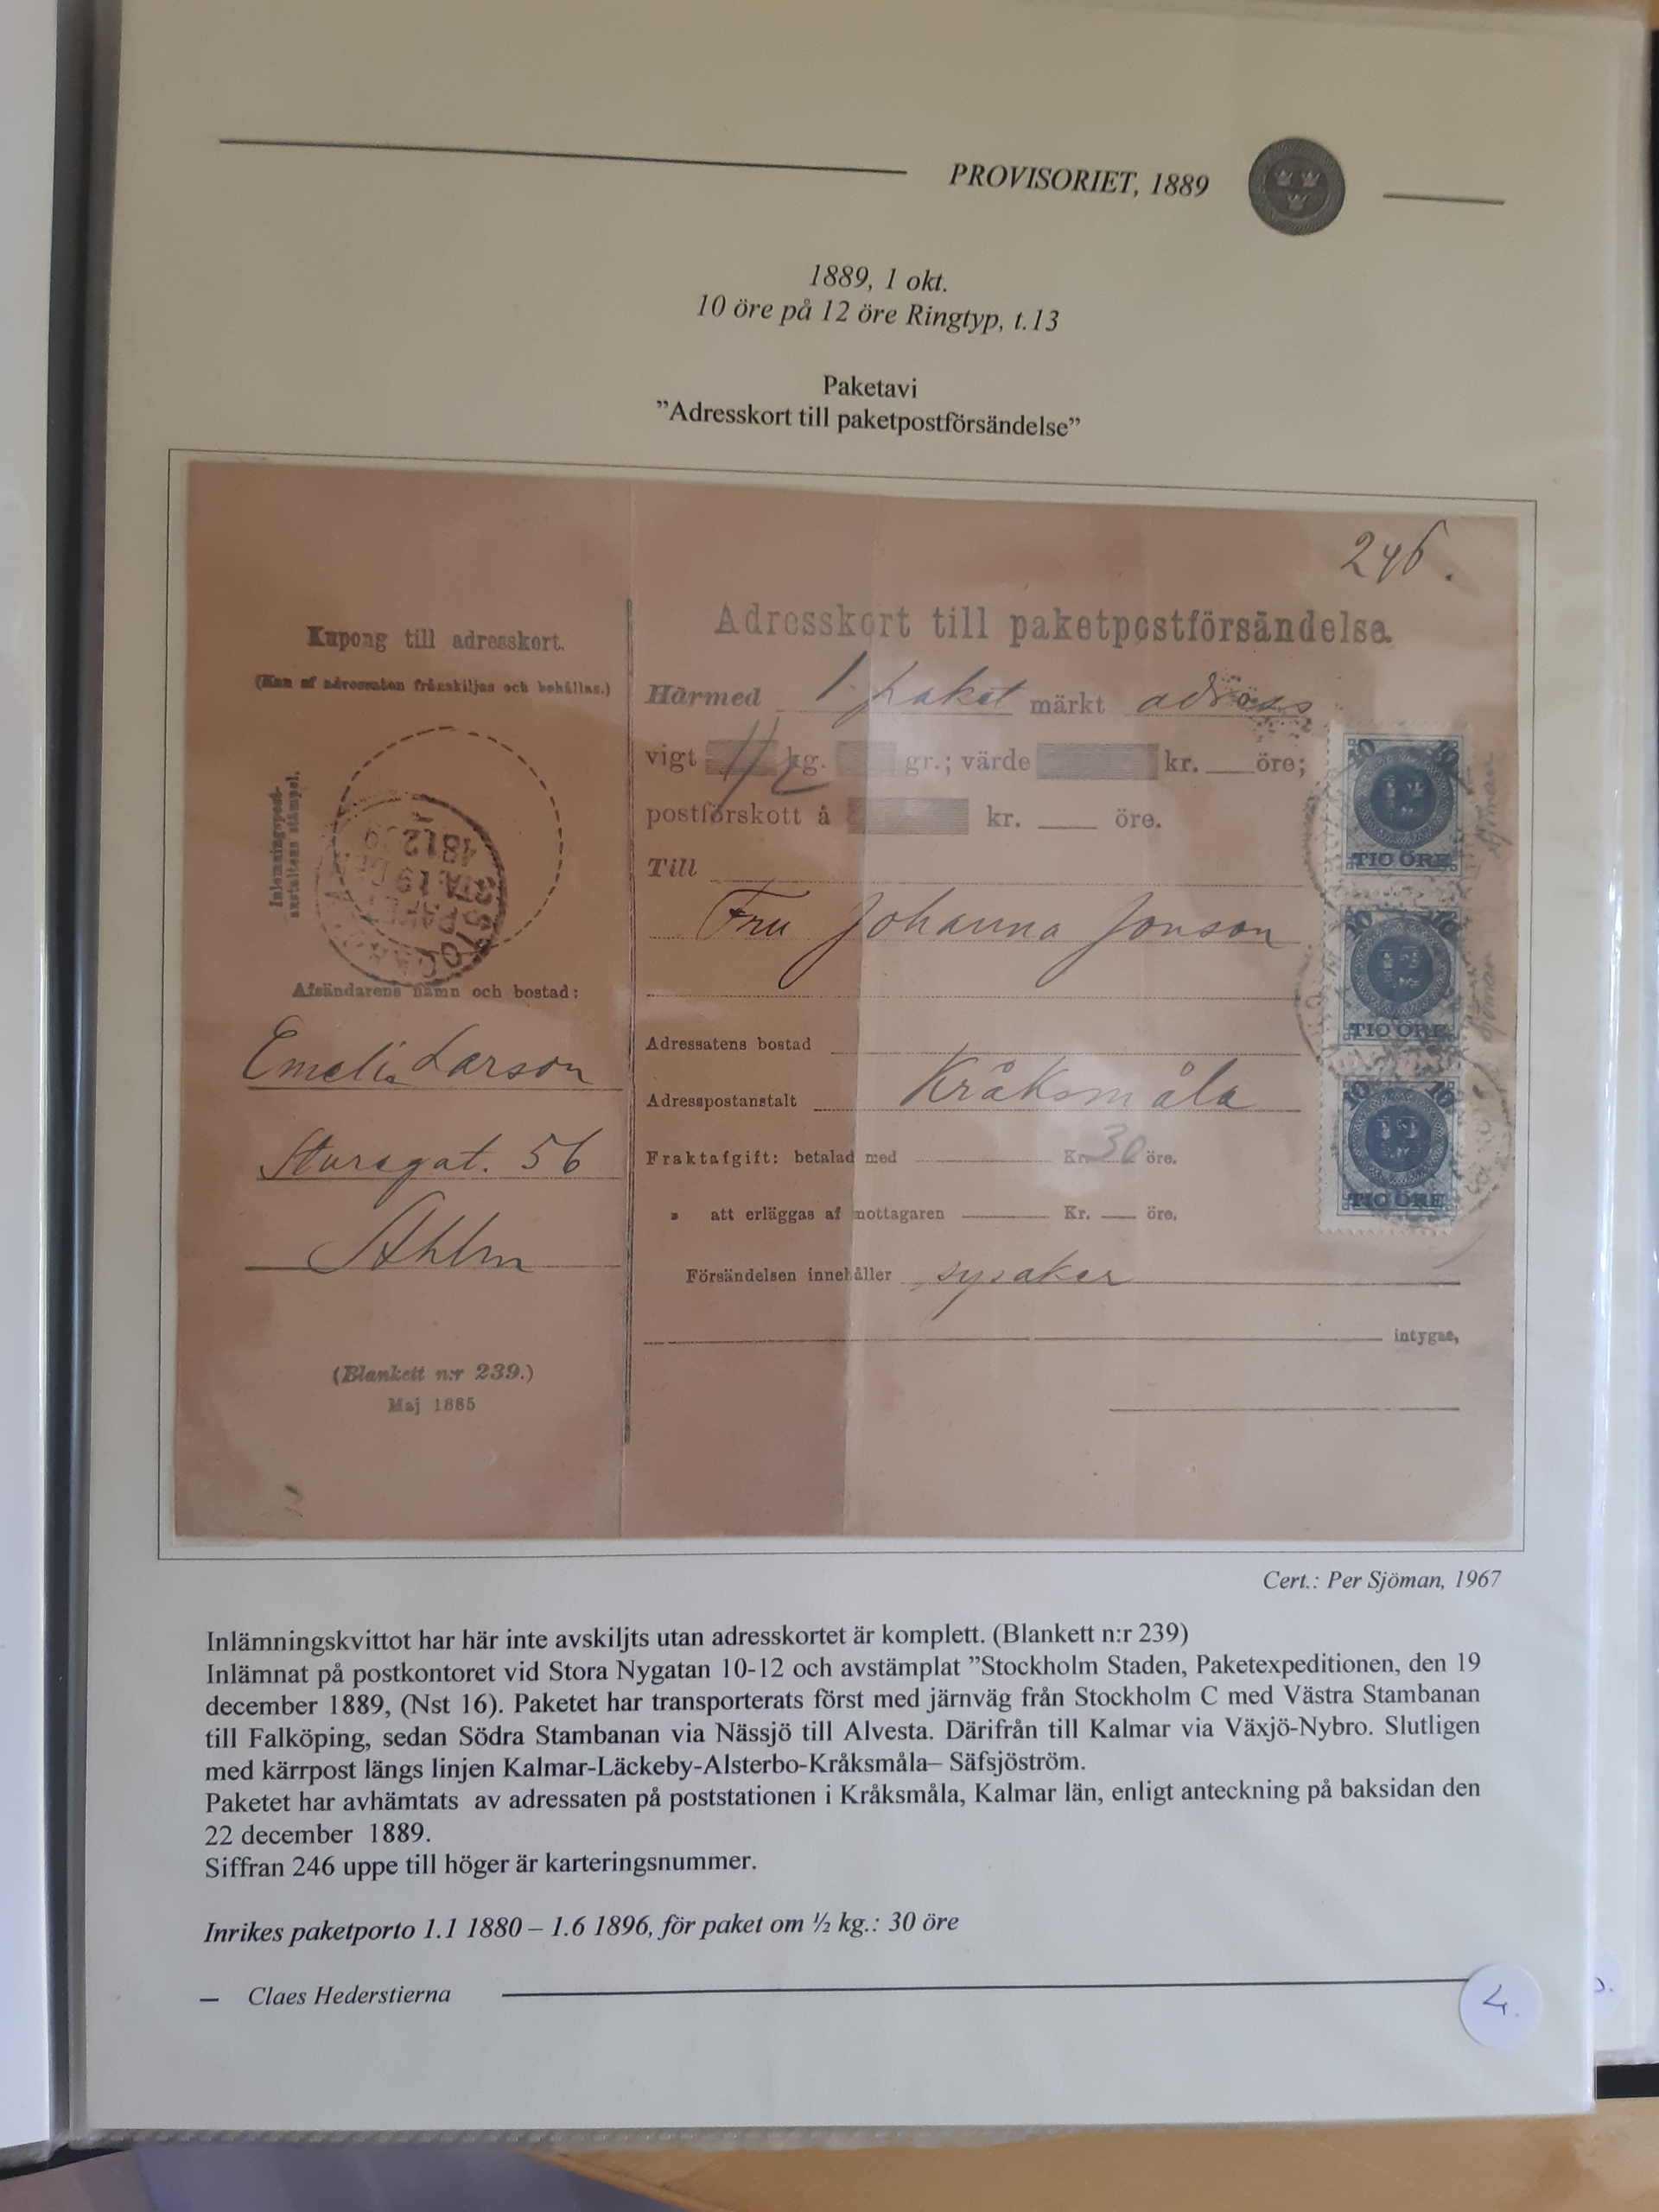 PROVISORIET, 1889
1889, 1 okt.
10 öre på 12 öre Ringtyp, t.13
Paketavi
”Adresskort till paketpostförsändelse”
246.
Kupong till adresskort.
(Kan af adressaten frånskiljas och behållas.)
Inlemningspost-
anstaltens stämpel.
Afsändarens namn och bostad:
Emelia Larson
Sturegat. 56
Sthlm
(Blankett n:r 239.)
Maj 1885
Adresskort till paketpostförsändelse.
Härmed 1 paket märkt adress
vigt 1/2 kg. gr.; värde kr. öre;
postförskott å kr. öre.
Till
Fru Johanna Jonson
Adressatens bostad
Adresspostanstalt Kråksmåla
Fraktafgift: betalad med Kr. 30 öre.
» att erläggas af mottagaren Kr. öre.
Försändelsen innehåller sysaker
intygas,
10 10
TIO ÖRE
10 10
TIO ÖRE
10 10
TIO ÖRE
Cert.: Per Sjöman, 1967
Inlämningskvittot har här inte avskiljts utan adresskortet är komplett. (Blankett n:r 239)
Inlämnat på postkontoret vid Stora Nygatan 10-12 och avstämplat ”Stockholm Staden, Paketexpeditionen, den 19
december 1889, (Nst 16). Paketet har transporterats först med järnväg från Stockholm C med Västra Stambanan
till Falköping, sedan Södra Stambanan via Nässjö till Alvesta. Därifrån till Kalmar via Växjö-Nybro. Slutligen
med kärrpost längs linjen Kalmar-Läckeby-Alsterbo-Kråksmåla– Säfsjöström.
Paketet har avhämtats av adressaten på poststationen i Kråksmåla, Kalmar län, enligt anteckning på baksidan den
22 december 1889.
Siffran 246 uppe till höger är karteringsnummer.
Inrikes paketporto 1.1 1880 – 1.6 1896, för paket om ½ kg.: 30 öre
– Claes Hederstierna
4.